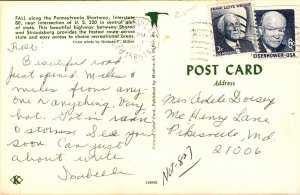 FALL along the Pennsylvania Shortway, Interstate
80, near intersection of U.S. 220 in central part of
state. This beautiful highway between Sharon
and Stroudsburg provides the fastest route across
state and easy access to choice recreational areas.
Color photo by Richard C. Miller
FRANK LLOYD WRIGHT
2c
EISENHOWER·USA
POST CARD
Address
Dear
Beautiful road
just opened. Miles &
miles from any-
one or anything. Very
hot. Got in rain
& storms. See you
soon. Can just
about write
Isabelle
Mrs Adele Dorsey
Mc Henry Lane
Pikesville, Md.
21006
K